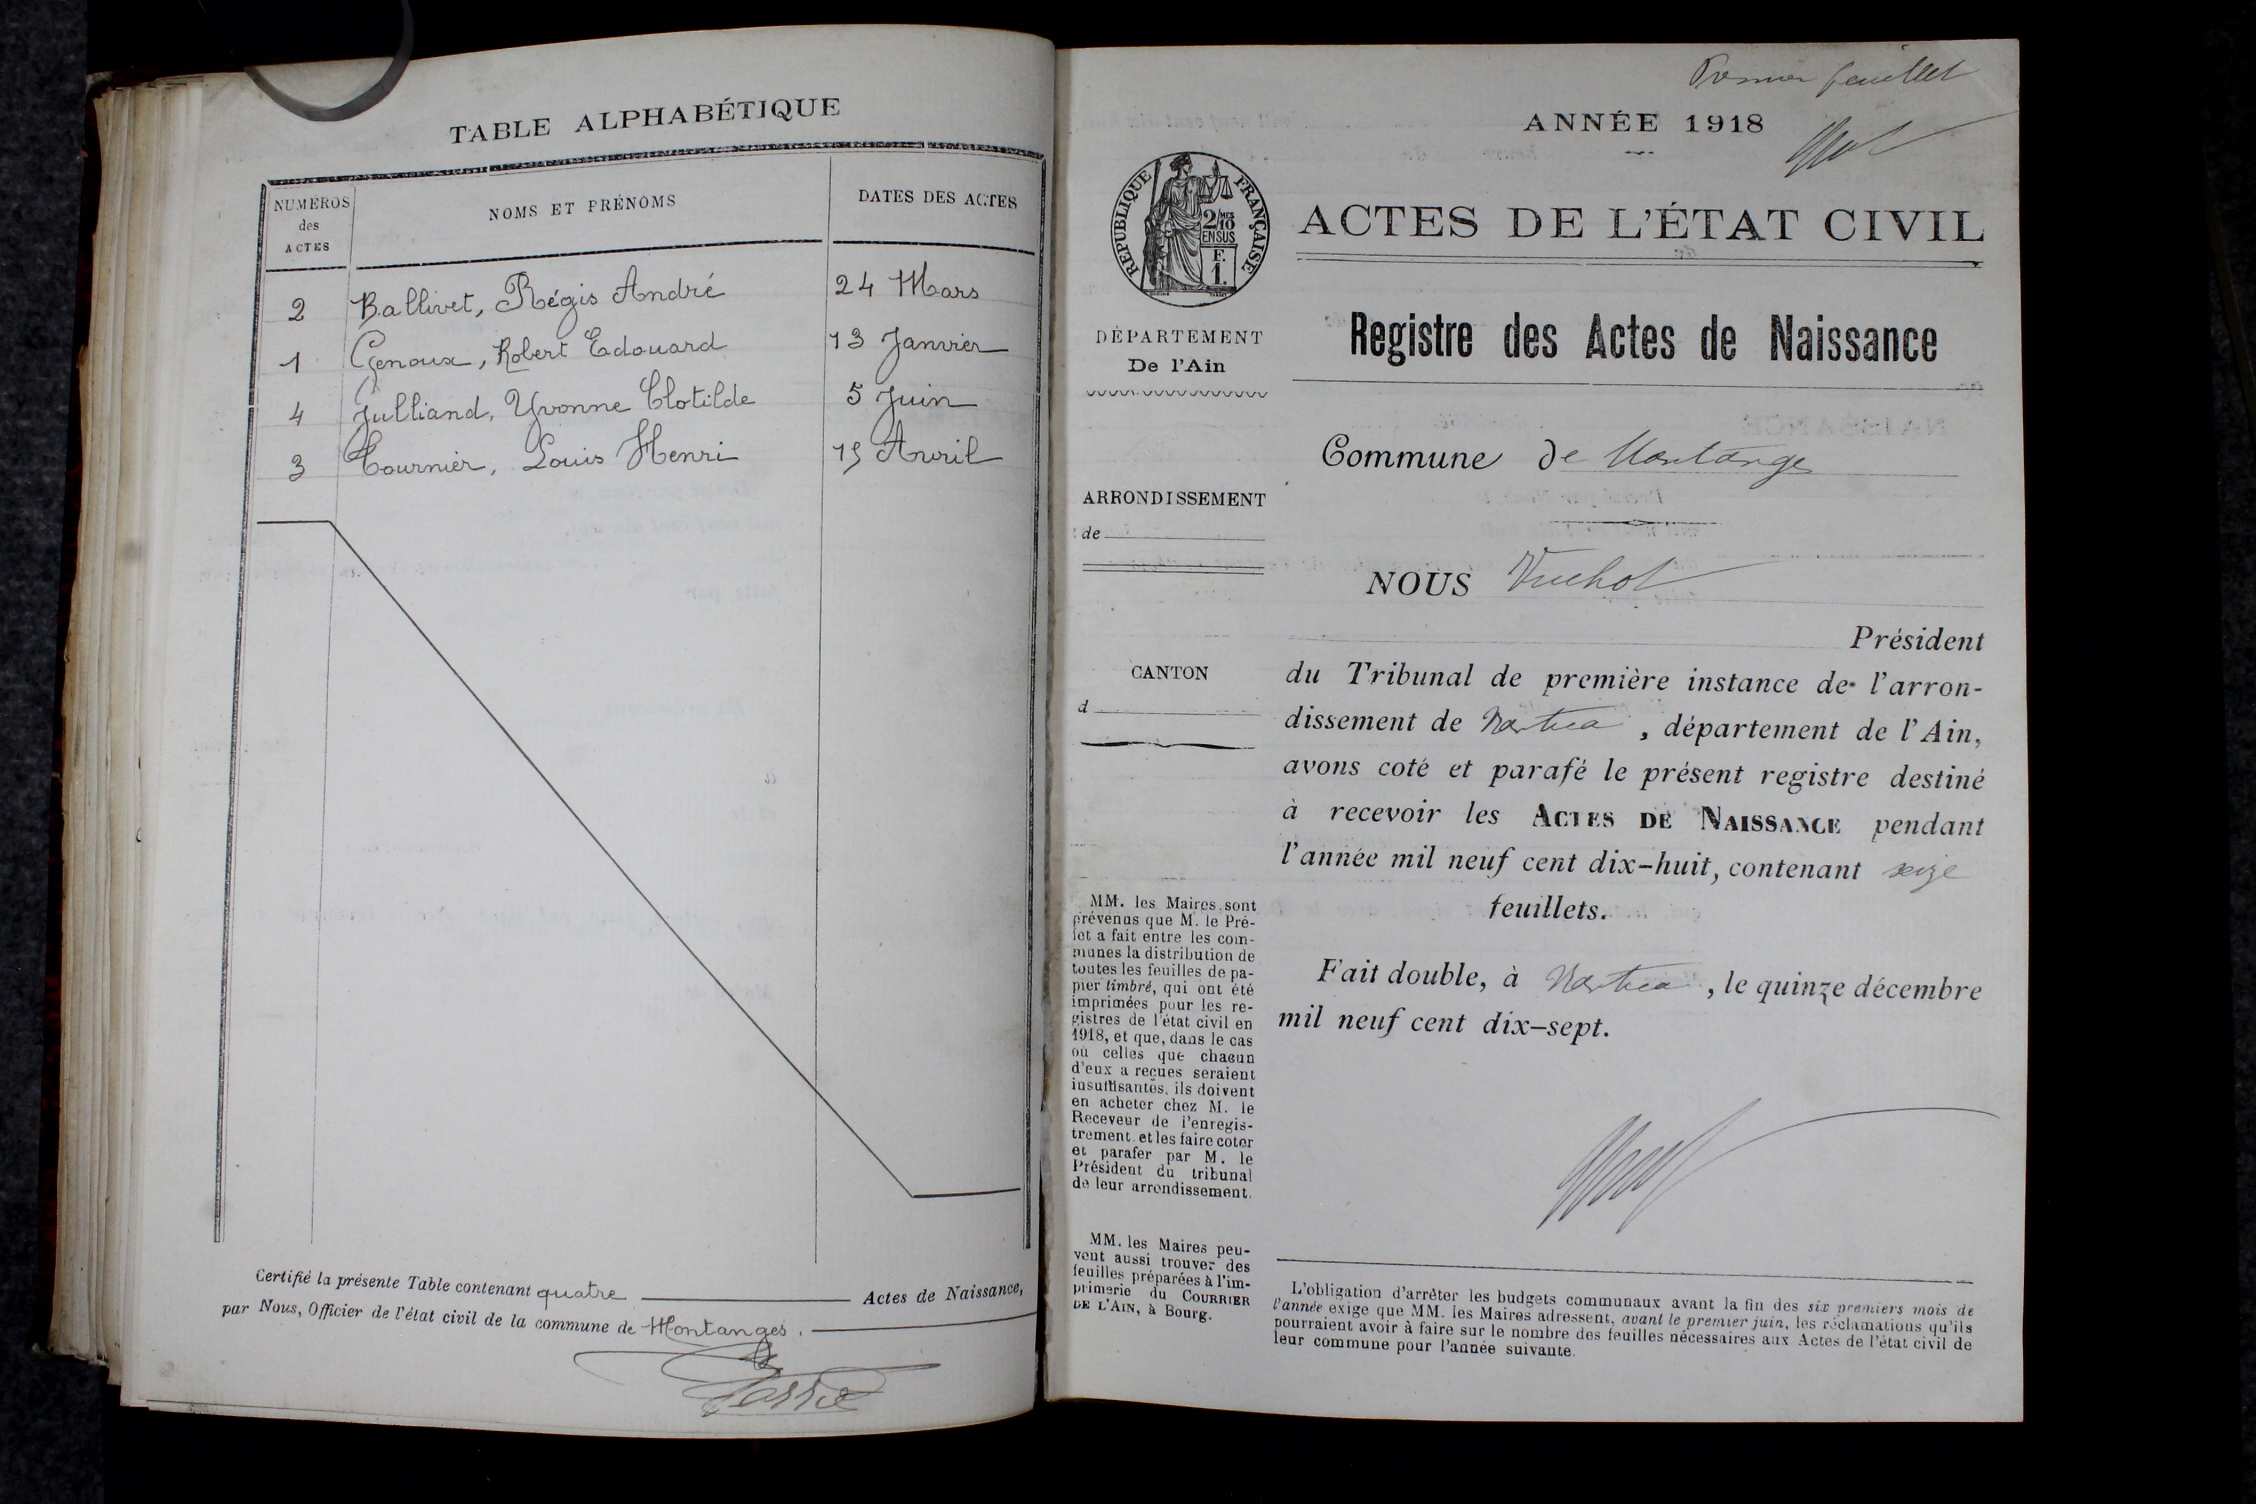 TABLE ALPHABÉTIQUE
NUMÉROS
des
ACTES
NOMS ET PRÉNOMS
DATES DES ACTES
2 Ballivet, Régis André 24 Mars
1 Genoux, Robert Edouard 13 Janvier
4 Julliand, Yvonne Clotilde 5 Juin
3 Tournier, Louis Henri 15 Avril
Certifié la présente Table contenant quatre Actes de Naissance,
par Nous, Officier de l'état civil de la commune de Montanges.
Premier feuillet
ANNÉE 1918
RÉPUBLIQUE FRANÇAISE
2/10 MES
EN SUS
F.
1.
ACTES DE L'ÉTAT CIVIL
DÉPARTEMENT
De l'Ain
Registre des Actes de Naissance
Commune de Montanges
ARRONDISSEMENT
de
NOUS Vuchot
Président
CANTON
d
du Tribunal de première instance de l'arron-
dissement de Nantua, département de l'Ain,
avons coté et parafé le présent registre destiné
à recevoir les ACTES DE NAISSANCE pendant
l'année mil neuf cent dix-huit, contenant seize
feuillets.
Fait double, à Nantua, le quinze décembre
mil neuf cent dix-sept.
MM. les Maires sont
prévenus que M. le Pré-
fet a fait entre les com-
munes la distribution de
toutes les feuilles de pa-
pier timbré, qui ont été
imprimées pour les re-
gistres de l'état civil en
1918, et que, dans le cas
où celles que chacun
d'eux a reçues seraient
insuffisantes, ils doivent
en acheter chez M. le
Receveur de l'enregis-
trement et les faire coter
et parafer par M. le
Président du tribunal
de leur arrondissement.
MM. les Maires peu-
vent aussi trouver des
feuilles préparées à l'im-
primerie du COURRIER
DE L'AIN, à Bourg.
L'obligation d'arrêter les budgets communaux avant la fin des six premiers mois de
l'année exige que MM. les Maires adressent, avant le premier juin, les réclamations qu'ils
pourraient avoir à faire sur le nombre des feuilles nécessaires aux Actes de l'état civil de
leur commune pour l'année suivante.